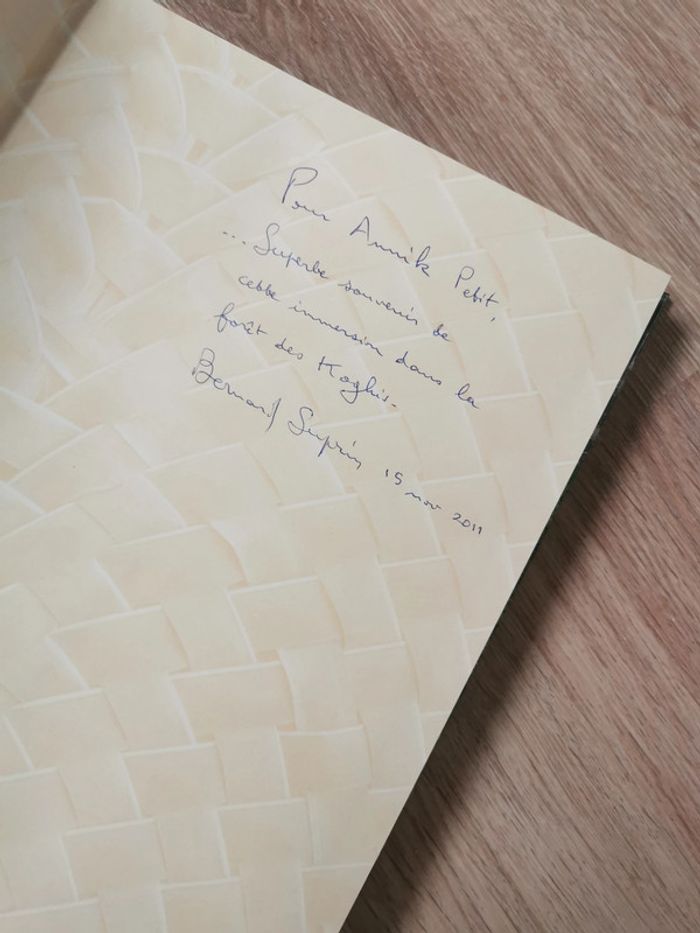 Pour Annik Petit,
... Superbe souvenir de
cette immersion dans la
forêt des Koghis.
Bernard Suprin 15 nov 2011